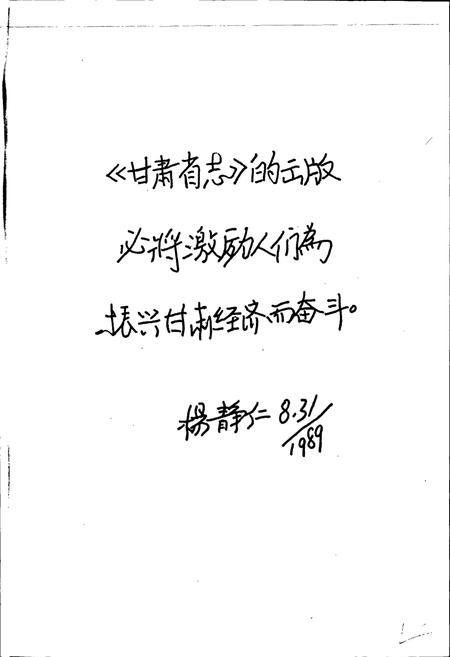 《甘肃省志》的出版
必将激励人们為
振兴甘肃经济而奋斗。
楊静仁 8.31/1989